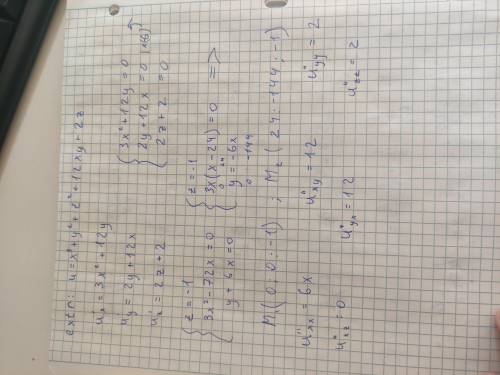 extr: u = x³ + y² + z² + 12xy + 2z
u'x = 3x² + 12y
u'y = 2y + 12x
u'z = 2z + 2
{ 3x² + 12y = 0
2y + 12x = 0
2z + 2 = 0
{ z = -1
3x² - 72x = 0
y + 6x = 0
{ z = -1
3x(x - 24) = 0 =>
0 24
y = -6x
0 -144
M₁(0; 0; -1) ; M₂(24; -144; -1)
u''xx = 6x u''xy = 12 u''yy = 2
u''xz = 0 u''yx = 12 u''zz = 2